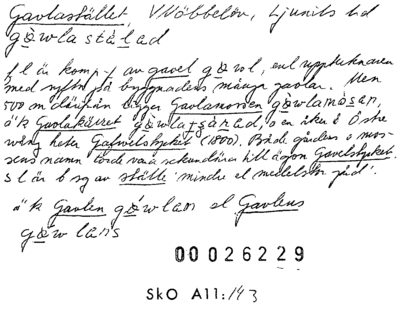 Gavlastället, V Vöbbelöv, Ljunits hd
gǫ̀wla stä́lad
f l är komp-f av gavel gǫwl, enl upptecknaren
med syftn på byggnadens många gavlar. Men
500 m därifrån ligger Gavlamossen gǫ̀wlamȯsan,
ä'k Gavlakärret, o en åker i Östre
vång heter Gafvelstycket (1800). Både gårdens o mos-
sens namn torde vara sekundära till ägon Gavelstycket.
s l är b sg av ställe 'mindre el medelstor gård'.
ä'k Gavlen gǫ́wlan el Gavlens
gǫ́wlans
00026229
SkO A11:143